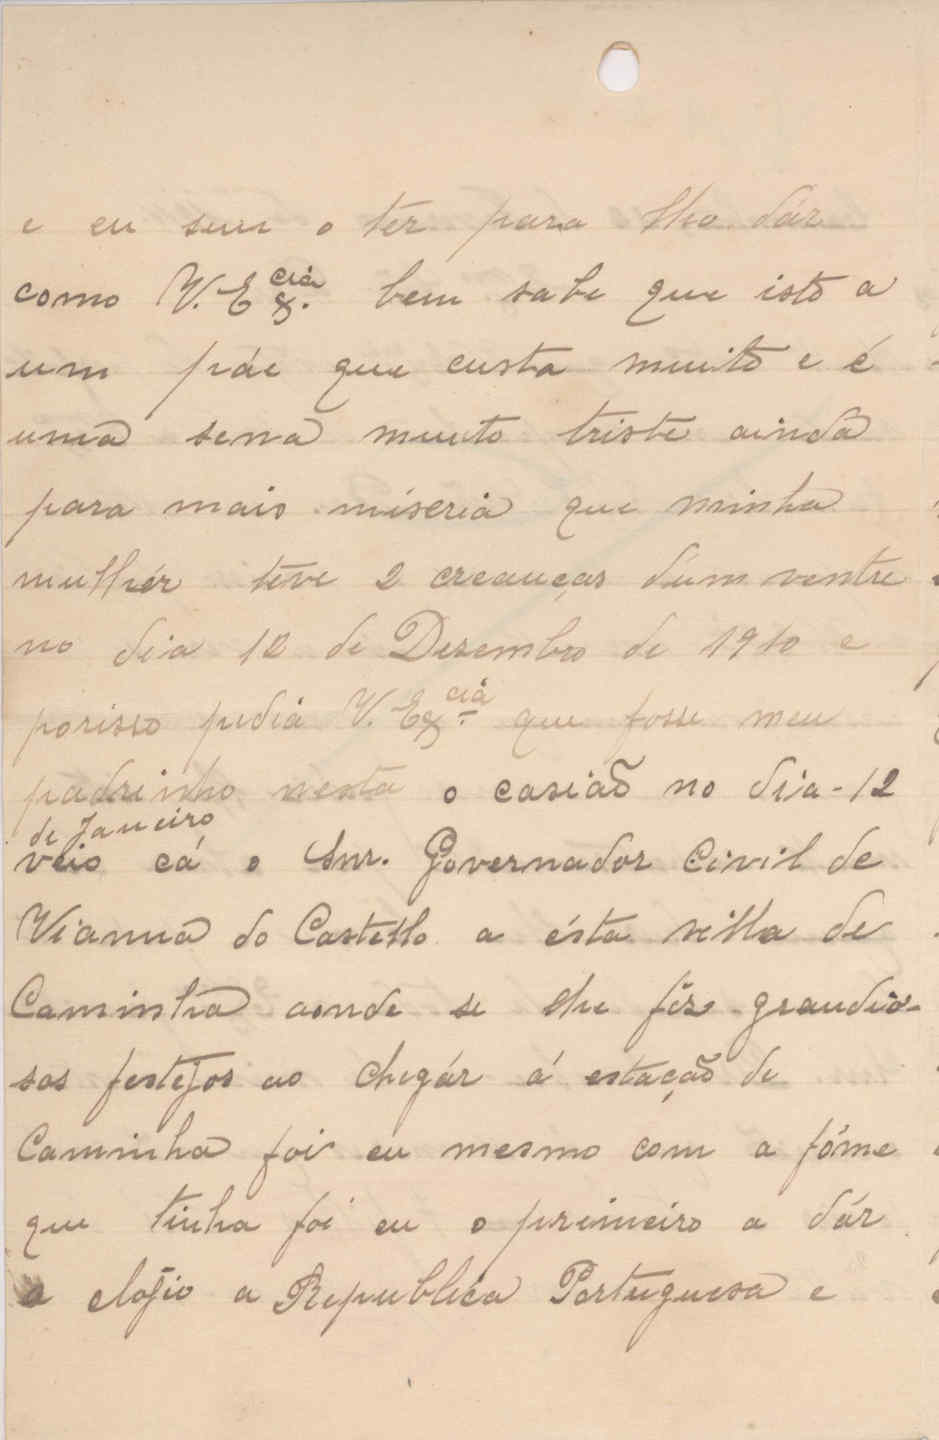 e eu sem o têr para lho dár
como V. Ex.ciá bem sabe que isto a
um páe que custa muito e é
uma sena muito triste ainda
para mais miseria que minha
mulhér têve 2 creanças dúm ventre
no dia 12 de Dezembro de 1910 e
porisso pedia V. Ex.ciá que fosse meu
padrinho nesta o casião no dia-12
de Janeiro
veio cá o Snr. Governador Civil de
Vianna do Castello a ésta villa de
Caminha aonde se lhe fêz grandio-
sos festejos ao chegár á estação de
Caminha foi eu mesmo com a fóme
que tinha foi eu o primeiro a dár
o elogio a Republica Portuguesa e